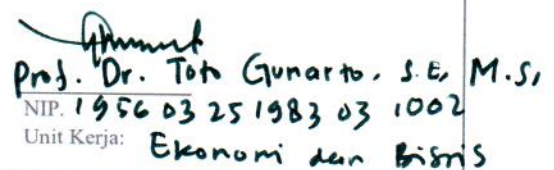 Prof. Dr. Toto Gunarto, S.E, M.S,
NIP. 1956 03 25 1983 03 1002
Unit Kerja: Ekonomi dan Bisnis